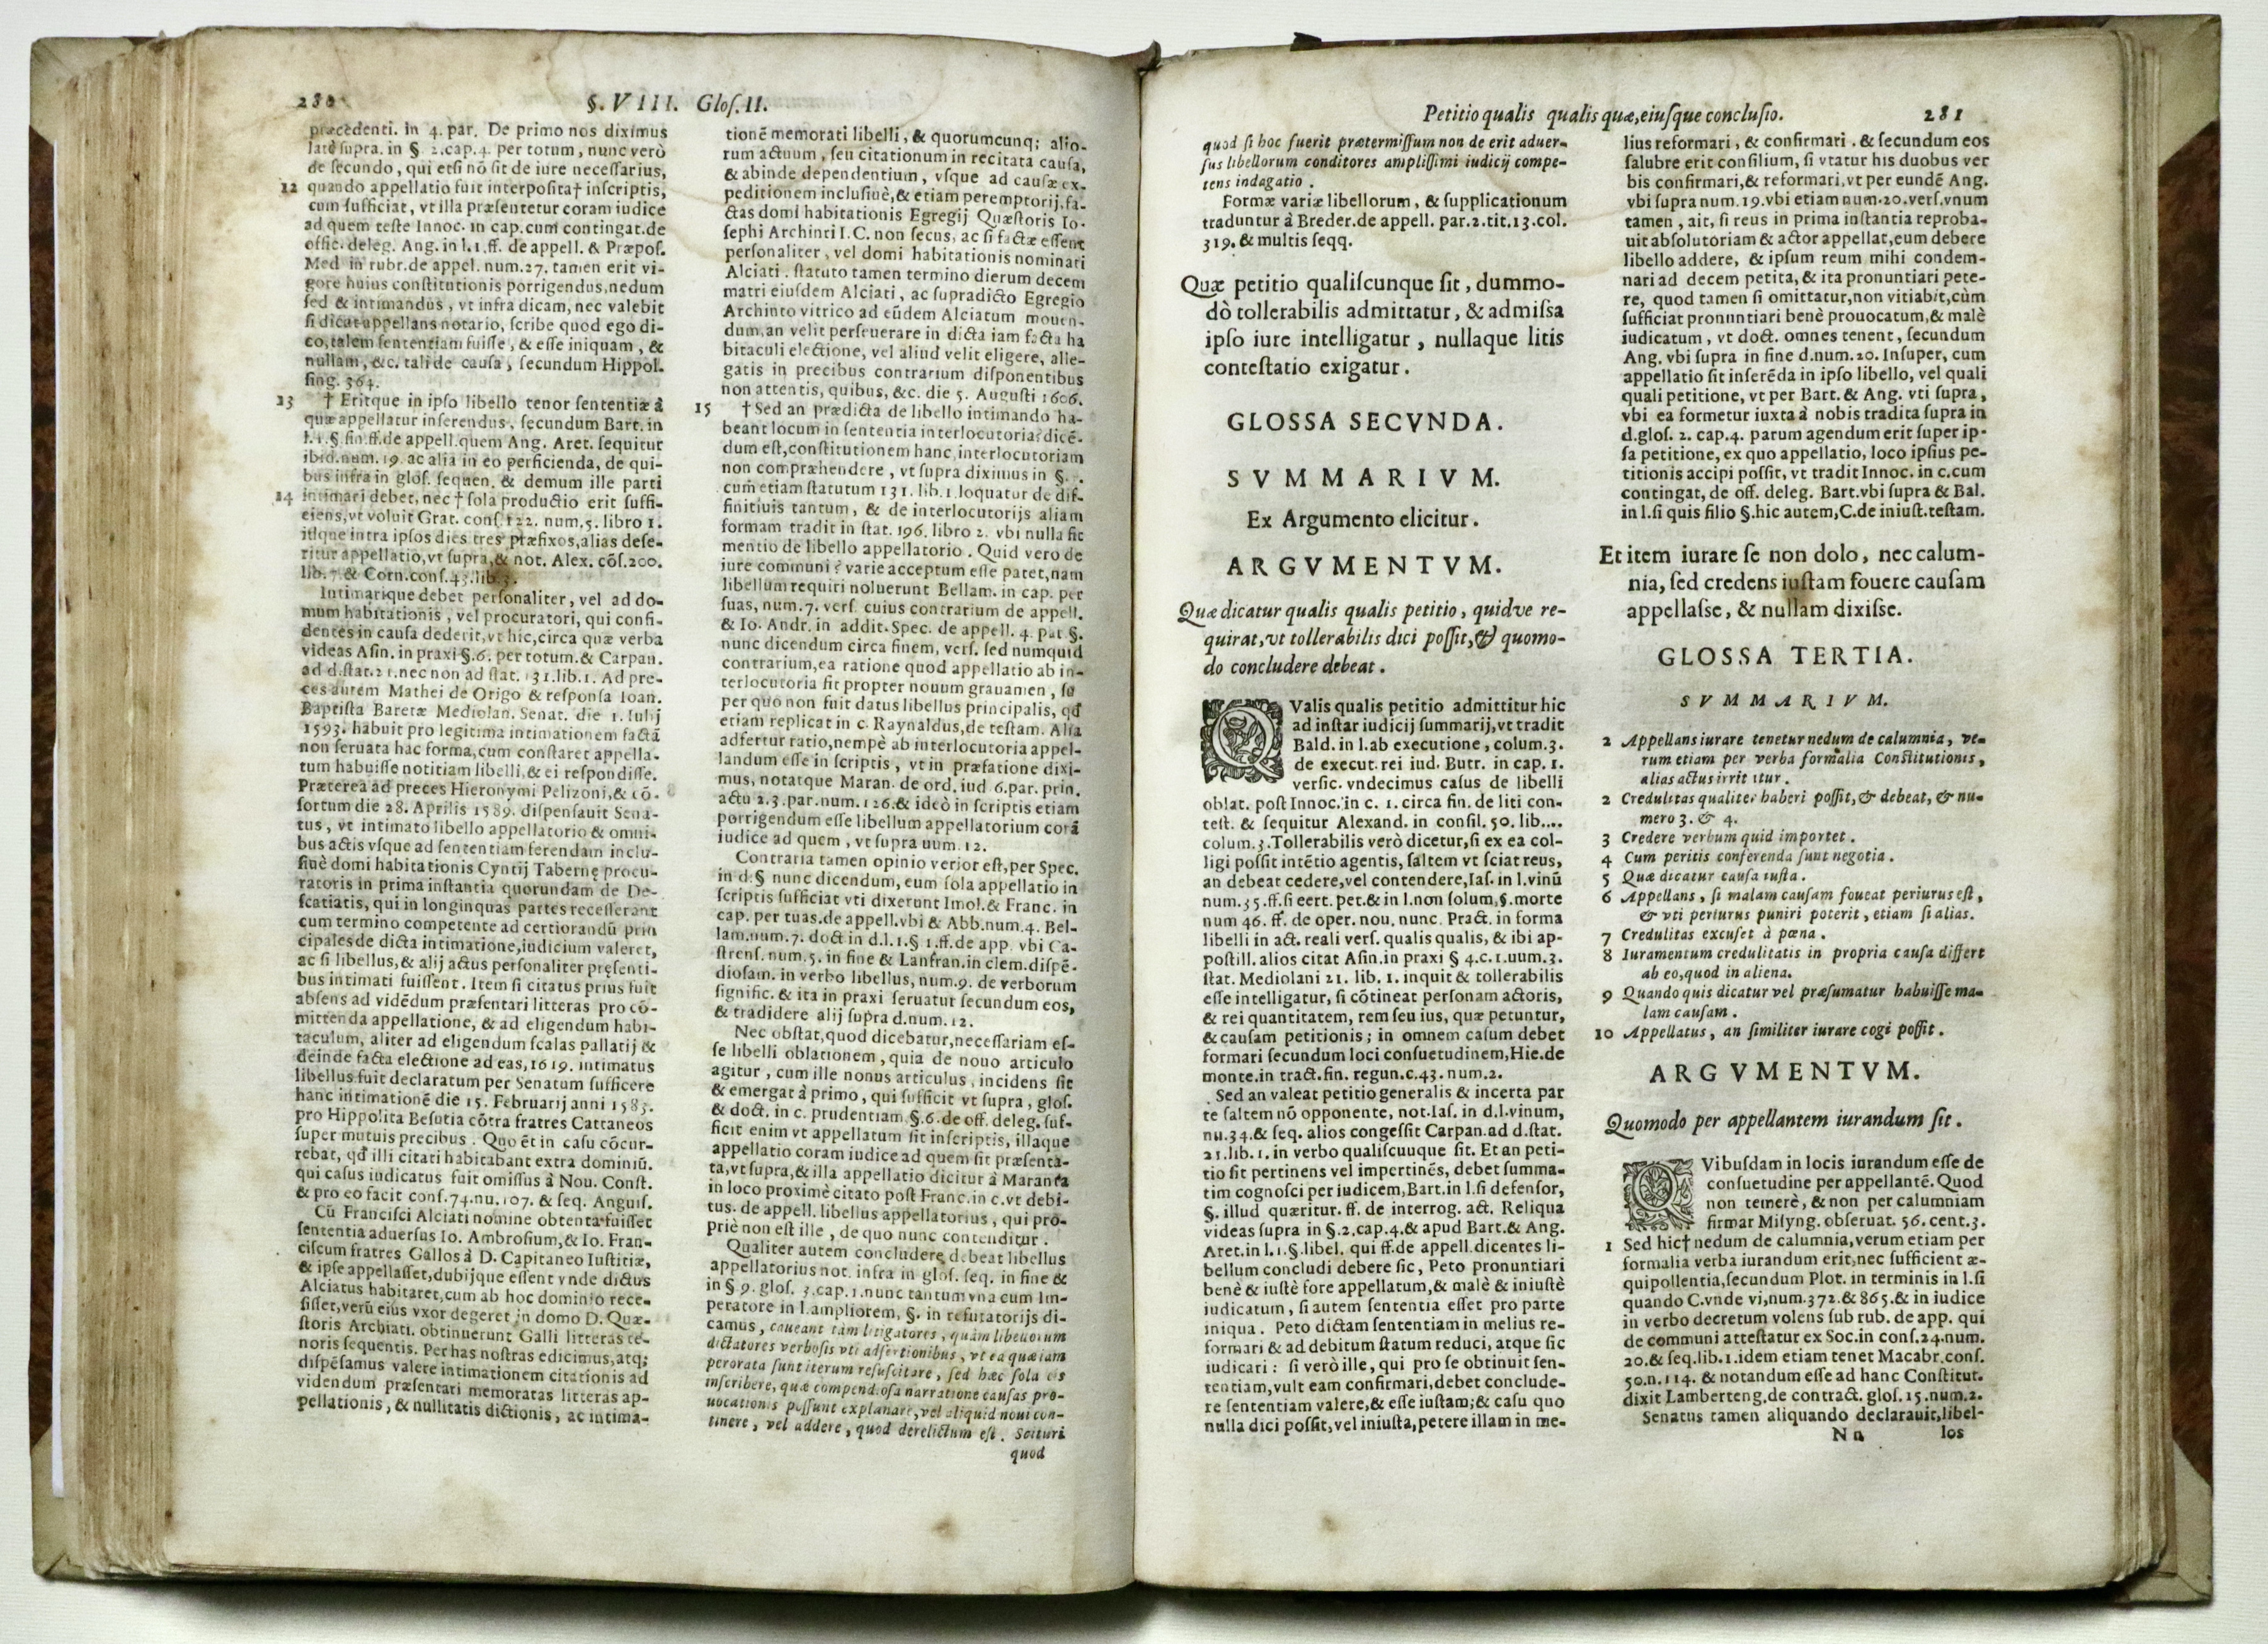 280 §. VIII. Gloſ. II.
præcedenti. in 4. par. De primo nos diximus
latè ſupra. in § 2.cap.4. per totum, nunc verò
de ſecundo, qui etſi nõ ſit de iure neceſſarius,
12 quando appellatio fuit interpoſita† inſcriptis,
cum ſufficiat, vt illa præſentetur coram iudice
ad quem teſte Innoc. in cap.cum contingat.de
offic. deleg. Ang. in l.1.ff. de appell. & Præpoſ.
Med in rubr.de appel. num.27. tamen erit vi-
gore huius conſtitutionis porrigendus,nedum
ſed & intimandus, vt infra dicam, nec valebit
ſi dicat appellans notario, ſcribe quod ego di-
co,talem ſententiam fuiſſe, & eſſe iniquam, &
nullam, &c. tali de cauſa, ſecundum Hippol.
ſing. 364.
13 † Eritque in ipſo libello tenor ſententiæ à
qua appellatur inſerendus, ſecundum Bart. in
l.1.§.fin.ff.de appell.quem Ang. Aret. ſequitur
ibid.num.19. ac alia in eo perficienda, de qui-
bus infra in gloſ. ſequen. & demum ille parti
14 intimari debet, nec † ſola productio erit ſuffi-
ciens,vt voluit Grat. conſ.122. num.5. libro 1.
itſque intra ipſos dies tres præfixos,alias deſe-
ritur appellatio,vt ſupra,& not. Alex. cõſ.200.
lib.7.& Corn.conſ.43.lib.3.
Intimarique debet perſonaliter, vel ad do-
mum habitationis, vel procuratori, qui confi-
dentes in cauſa dederit,vt hic,circa quæ verba
videas Aſin. in praxi §.6. per totum.& Carpan.
ad d.ſtat.21.nec non ad ſtat. 131.lib.1. Ad pre-
ces autem Mathei de Origo & reſponſa Ioan.
Baptiſta Baretæ Mediolan. Senat. die 1. Iulij
1593. habuit pro legitima intimationem factã
non ſeruata hac forma,cum conſtaret appella-
tum habuiſſe notitiam libelli,& ei reſpondiſſe.
Præterea ad preces Hieronymi Pelizoni,& cõ-
ſortum die 28. Aprilis 1589. diſpenſauit Sena-
tus, vt intimato libello appellatorio & omni-
bus actis vſque ad ſententiam ferendam inclu-
ſiuè domi habitationis Cyntij Tabernę procu-
ratoris in prima inſtantia quorundam de De-
ſcatiatis, qui in longinquas partes receſſerant
cum termino competente ad certiorandũ prin
cipales de dicta intimatione,iudicium valeret,
ac ſi libellus,& alij actus perſonaliter pręſenti-
bus intimati fuiſſent. Item ſi citatus prius fuit
abſens ad vidēdum præſentari litteras pro cō-
mittenda appellatione, & ad eligendum habi-
taculum, aliter ad eligendum ſcalas pallatij &
deinde facta electione ad eas, 1619. intimatus
libellus fuit declaratum per Senatum ſufficere
hanc intimationē die 15. Februarij anni 1583.
pro Hippolita Beſutia cõtra fratres Cattaneos
ſuper mutuis precibus. Quo ēt in caſu cõcur-
rebat, qđ illi citati habitabant extra dominiũ.
qui caſus iudicatus fuit omiſſus à Nou. Conſt.
& pro eo facit conſ.74.nu.107. & ſeq. Anguiſ.
Cũ Franciſci Alciati nomine obtenta fuiſſet
ſententia aduerſus Io. Ambroſium,& Io. Fran-
ciſcum fratres Gallos à D. Capitaneo Iuſtitiæ,
& ipſe appellaſſet,dubijque eſſent vnde dictus
Alciatus habitaret,cum ab hoc dominio rece-
ſiſſet,verũ eius vxor degeret in domo D. Quæ-
ſtoris Archiati. obtinuerunt Galli litteras te-
noris ſequentis. Per has noſtras edicimus,atq;
diſpēſamus valere intimationem citationis ad
videndum præſentari memoratas litteras ap-
pellationis, & nullitatis dictionis, ac intima-
tionē memorati libelli, & quorumcunq; alio-
rum actuum, ſeu citationum in recitata cauſa,
& abinde dependentium, vſque ad cauſæ ex-
peditionem incluſiuè,& etiam peremptorij.fa-
ctas domi habitationis Egregij Quæſtoris Io-
ſephi Archinti I.C. non ſecus, ac ſi factæ eſſent
perſonaliter, vel domi habitationis nominati
Alciati. ſtatuto tamen termino dierum decem
matri eiuſdem Alciati, ac ſupradicto Egregio
Archinto vitrico ad eũdem Alciatum mouen-
dum.an velit perſeuerare in dicta iam facta ha
bitaculi electione, vel aliud velit eligere, alle-
gatis in precibus contrarium diſponentibus
non attentis, quibus, &c. die 5. Auguſti 1606.
15 † Sed an prædicta de libello intimando ha-
beant locum in ſententia interlocutoria? dicē-
dum eſt,conſtitutionem hanc interlocutoriam
non compræhendere, vt ſupra diximus in §. .
cum etiam ſtatutum 131. lib.1 loquatur de dif-
finitiuis tantum, & de interlocutorijs aliam
formam tradit in ſtat. 196. libro 2. vbi nulla fit
mentio de libello appellatorio. Quid vero de
iure communi? varie acceptum eſſe patet,nam
libellum requiri noluerunt Bellam. in cap. per
ſuas, num.7. verſ. cuius contrarium de appell.
& Io. Andr. in addit. Spec. de appell. 4. pat §.
nunc dicendum circa finem, verſ. ſed numquid
contrarium,ea ratione quod appellatio ab in-
terlocutoria ſit propter nouum grauamen, ſu
per quo non fuit datus libellus principalis, qđ
etiam replicat in c. Raynaldus,de teſtam. Alia
adfertur ratio,nempè ab interlocutoria appel-
landum eſſe in ſcriptis, vt in præfatione dixi-
mus, notatque Maran. de ord. iud 6.par. prin.
actu 2.3.par.num.126.& ideò in ſcriptis etiam
porrigendum eſſe libellum appellatorium corā
iudice ad quem, vt ſupra uum. 12.
Contraria tamen opinio verior eſt,per Spec.
in d.§ nunc dicendum, eum ſola appellatio in
ſcriptis ſufficiat vti dixerunt Imol.& Franc. in
cap. per tuas.de appell.vbi & Abb.num.4. Bel-
lam.num.7. doct in d.l.1.§ 1.ff.de app. vbi Ca-
ſtrenſ. num.5. in fine & Lanfran.in clem.diſpē-
dioſam. in verbo libellus, num.9. de verborum
ſignific. & ita in praxi ſeruatur ſecundum eos,
& tradidere alij ſupra d.num.12.
Nec obſtat,quod dicebatur,neceſſariam eſ-
ſe libelli oblationem, quia de nouo articulo
agitur, cum ille nonus articulus, incidens ſit
& emergat à primo, qui ſufficit vt ſupra, gloſ.
& doct. in c. prudentiam.§.6.de off. deleg. ſuf-
ficit enim vt appellatum ſit inſcriptis, illaque
appellatio coram iudice ad quem ſit præſenta-
ta,vt ſupra,& illa appellatio dicitur à Maranta
in loco proximè citato poſt Franc.in c.vt debi-
tus. de appell. libellus appellatorius, qui pro-
priè non eſt ille, de quo nunc contenditur.
Qualiter autem concludere debeat libellus
appellatorius not. infra in gloſ. ſeq. in fine &
in §.9. gloſ. 3.cap.1.nunc tantum vna cum Im-
peratore in l.ampliorem, §. in refutatorijs di-
camus, caueant tàm litigatores, quàm libellorum
dictatores verboſis vti adſertionibus, vt ea quæ iam
perorata ſunt iterum reſuſcitare, ſed hæc ſola eis
inſcribere, quæ compendioſa narratione cauſas pro-
uocationis poſſunt explanare, vel aliquid noui con-
tinere, vel addere, quod derelictum eſt. Scituri
quod
Petitio qualis qualis quæ,eiuſque concluſio. 281
quod ſi hoc fuerit prætermiſſum non de erit aduer-
ſus libellorum conditores ampliſſimi iudicij compe-
tens indagatio.
Formæ variæ libellorum, & ſupplicationum
traduntur à Breder.de appell. par.2.tit.13.col.
319.& multis ſeqq.
Quæ petitio qualiſcunque ſit, dummo-
dò tollerabilis admittatur, & admiſſa
ipſo iure intelligatur, nullaque litis
conteſtatio exigatur.
GLOSSA SECVNDA.
SVMMARIVM.
Ex Argumento elicitur.
ARGVMENTVM.
Quæ dicatur qualis qualis petitio, quidve re-
quirat,vt tollerabilis dici poſſit,& quomo-
do concludere debeat.
QValis qualis petitio admittitur hic
ad inſtar iudicij ſummarij,vt tradit
Bald. in l.ab executione, colum.3.
de execut.rei iud. Butr. in cap. 1.
verſic. vndecimus caſus de libelli
oblat. poſt Innoc. in c. 1. circa fin. de liti con-
teſt. & ſequitur Alexand. in conſil. 50. lib....
colum.3.Tollerabilis verò dicetur,ſi ex ea col-
ligi poſſit intētio agentis, ſaltem vt ſciat reus,
an debeat cedere,vel contendere,Iaſ. in l.vinũ
num.35.ff.ſi cert. pet.& in l.non ſolum,§.morte
num 46. ff. de oper. nou. nunc. Pract. in forma
libelli in act. reali verſ. qualis qualis, & ibi ap-
poſtill. alios citat Aſin.in praxi § 4.c.1.uum.3.
ſtat. Mediolani 21. lib. 1. inquit & tollerabilis
eſſe intelligatur, ſi cõtineat perſonam actoris,
& rei quantitatem, rem ſeu ius, quæ petuntur,
& cauſam petitionis; in omnem caſum debet
formari ſecundum loci conſuetudinem,Hie.de
monte.in tract.fin. regun.c.43. num.2.
Sed an valeat petitio generalis & incerta par
te ſaltem nõ opponente, not.Iaſ. in d.l.vinum,
nu.34.& ſeq. alios congeſſit Carpan.ad d.ſtat.
21.lib.1.in verbo qualiſcuuque ſit. Et an peti-
tio ſit pertinens vel impertinēs, debet ſumma-
tim cognoſci per iudicem,Bart.in l.ſi defenſor,
§. illud quæritur. ff. de interrog. act. Reliqua
videas ſupra in §.2.cap.4.& apud Bart.& Ang.
Aret.in l.1.§.libel. qui ff.de appell.dicentes li-
bellum concludi debere ſic, Peto pronuntiari
benè & iuſtè fore appellatum,& malè & iniuſtè
iudicatum, ſi autem ſententia eſſet pro parte
iniqua. Peto dictam ſententiam in melius re-
formari & ad debitum ſtatum reduci, atque ſic
iudicari: ſi verò ille, qui pro ſe obtinuit ſen-
tentiam,vult eam confirmari,debet conclude-
re ſententiam valere,& eſſe iuſtam;& caſu quo
nulla dici poſſit,vel iniuſta,petere illam in me-
lius reformari, & confirmari. & ſecundum eos
ſalubre erit conſilium, ſi vtatur his duobus ver
bis confirmari,& reformari,vt per eundē Ang.
vbi ſupra num. 19.vbi etiam num.20.verſ.vnum
tamen, ait, ſi reus in prima inſtantia reproba-
uit abſolutoriam & actor appellat,eum debere
libello addere, & ipſum reum mihi condem-
nari ad decem petita, & ita pronuntiari pete-
re, quod tamen ſi omittatur,non vitiabit,cùm
ſufficiat pronuntiari benè prouocatum,& malè
iudicatum, vt doct. omnes tenent, ſecundum
Ang. vbi ſupra in fine d.num.20. Inſuper, cum
appellatio ſit inſerēda in ipſo libello, vel quali
quali petitione, vt per Bart. & Ang. vti ſupra,
vbi ea formetur iuxta à nobis tradita ſupra in
d.gloſ. 2. cap.4. parum agendum erit ſuper ip-
ſa petitione, ex quo appellatio, loco ipſius pe-
titionis accipi poſſit, vt tradit Innoc. in c.cum
contingat, de off. deleg. Bart.vbi ſupra & Bal.
in l.ſi quis filio §.hic autem,C.de iniuſt.teſtam.
Et item iurare ſe non dolo, nec calum-
nia, ſed credens iuſtam fouere cauſam
appellaſſe, & nullam dixiſſe.
GLOSSA TERTIA.
SVMMARIVM.
2 Appellans iurare tenetur nedum de calumnia, ve-
rum etiam per verba formalia Conſtitutionis,
alias actus irritatur.
2 Credulitas qualiter haberi poſſit,& debeat, & nu-
mero 3. & 4.
3 Credere verbum quid importet.
4 Cum peritis conferenda ſunt negotia.
5 Quæ dicatur cauſa iuſta.
6 Appellans, ſi malam cauſam foueat periurus eſt,
& vti periurus puniri poterit, etiam ſi alias.
7 Credulitas excuſet à pœna.
8 Iuramentum credulitatis in propria cauſa differt
ab eo,quod in aliena.
9 Quando quis dicatur vel præſumatur habuiſſe ma-
lam cauſam.
10 Appellatus, an ſimiliter iurare cogi poſſit.
ARGVMENTVM.
Quomodo per appellantem iurandum ſit.
QVibuſdam in locis iurandum eſſe de
conſuetudine per appellantē. Quod
non temerè, & non per calumniam
firmar Miſyng. obſeruat. 56. cent.3.
1 Sed hic† nedum de calumnia,verum etiam per
formalia verba iurandum erit,nec ſufficient æ-
quipollentia,ſecundum Plot. in terminis in l.ſi
quando C.vnde vi,num.372.& 865.& in iudice
in verbo decretum volens ſub rub. de app. qui
de communi atteſtatur ex Soc.in conſ.24.num.
20.& ſeq.lib.1.idem etiam tenet Macabr.conſ.
50.n.114. & notandum eſſe ad hanc Conſtitut.
dixit Lamberteng.de contract. gloſ. 15.num.2.
Senatus tamen aliquando declarauit,libel-
Nn los